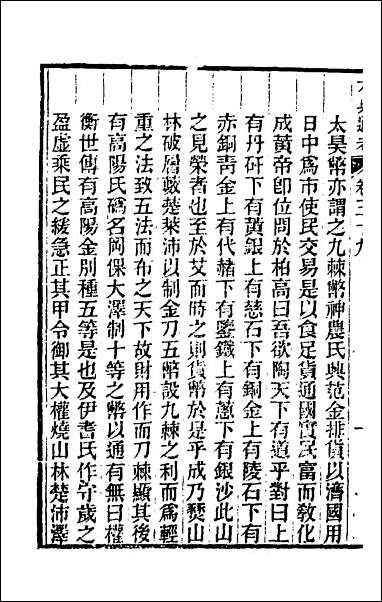 太昊幣亦謂之九棘幣神農氏興范金排貨以濟國用
日中爲市使民交易是以食足貨通國實民富而敎化
成黃帝卽位問於柏高曰吾欲陶天下有道乎對曰上
有丹矸下有黃銀上有慈石下有銅金上有陵石下有
赤銅青金上有代赭下有鑒鐵上有蔥下有銀沙此山
之見榮者也至於艾而時之則貨幣於是乎成乃燹山
林破層藪楚萊沛以制金刀五幣設九棘之利而爲輕
重之法致五法而布之天下故財用作而刀棘顯其後
有高陽氏碼名岡倮大澤制十等之幣以通有無曰權
衡世傳有高陽金別種五等是也及伊耆氏作守歲之
盈虛乘民之緩急正其甲令御其大權燒山林楚沛澤